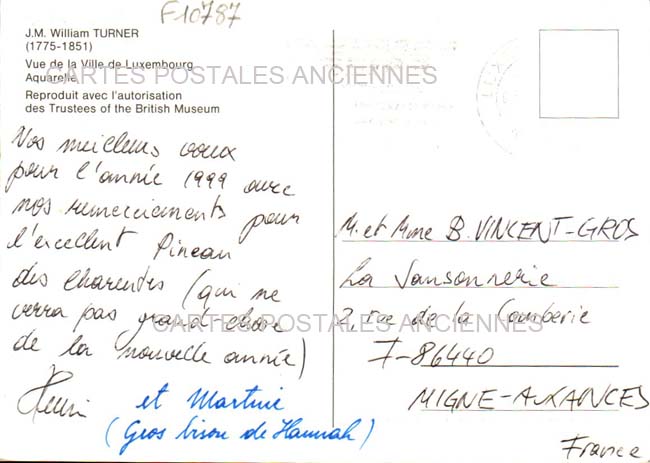 F10787
J.M. William TURNER
(1775-1851)
Vue de la Ville de Luxembourg
Aquarelle
Reproduit avec l'autorisation
des Trustees of the British Museum
CARTES POSTALES ANCIENNES
Nos meilleurs vœux
pour l'année 1999 avec
nos remerciements pour
l'excellent Pineau
des Charentes (qui ne
verra pas grand chose
de la nouvelle année)
Henri et Martine
(Gros bisou de Hannah)
M. et Mme B. VINCENT-GROS
La Sansonnerie
2, rue de la Comberie
F-86440
MIGNE-AUXANCES
France
CARTES POSTALES ANCIENNES